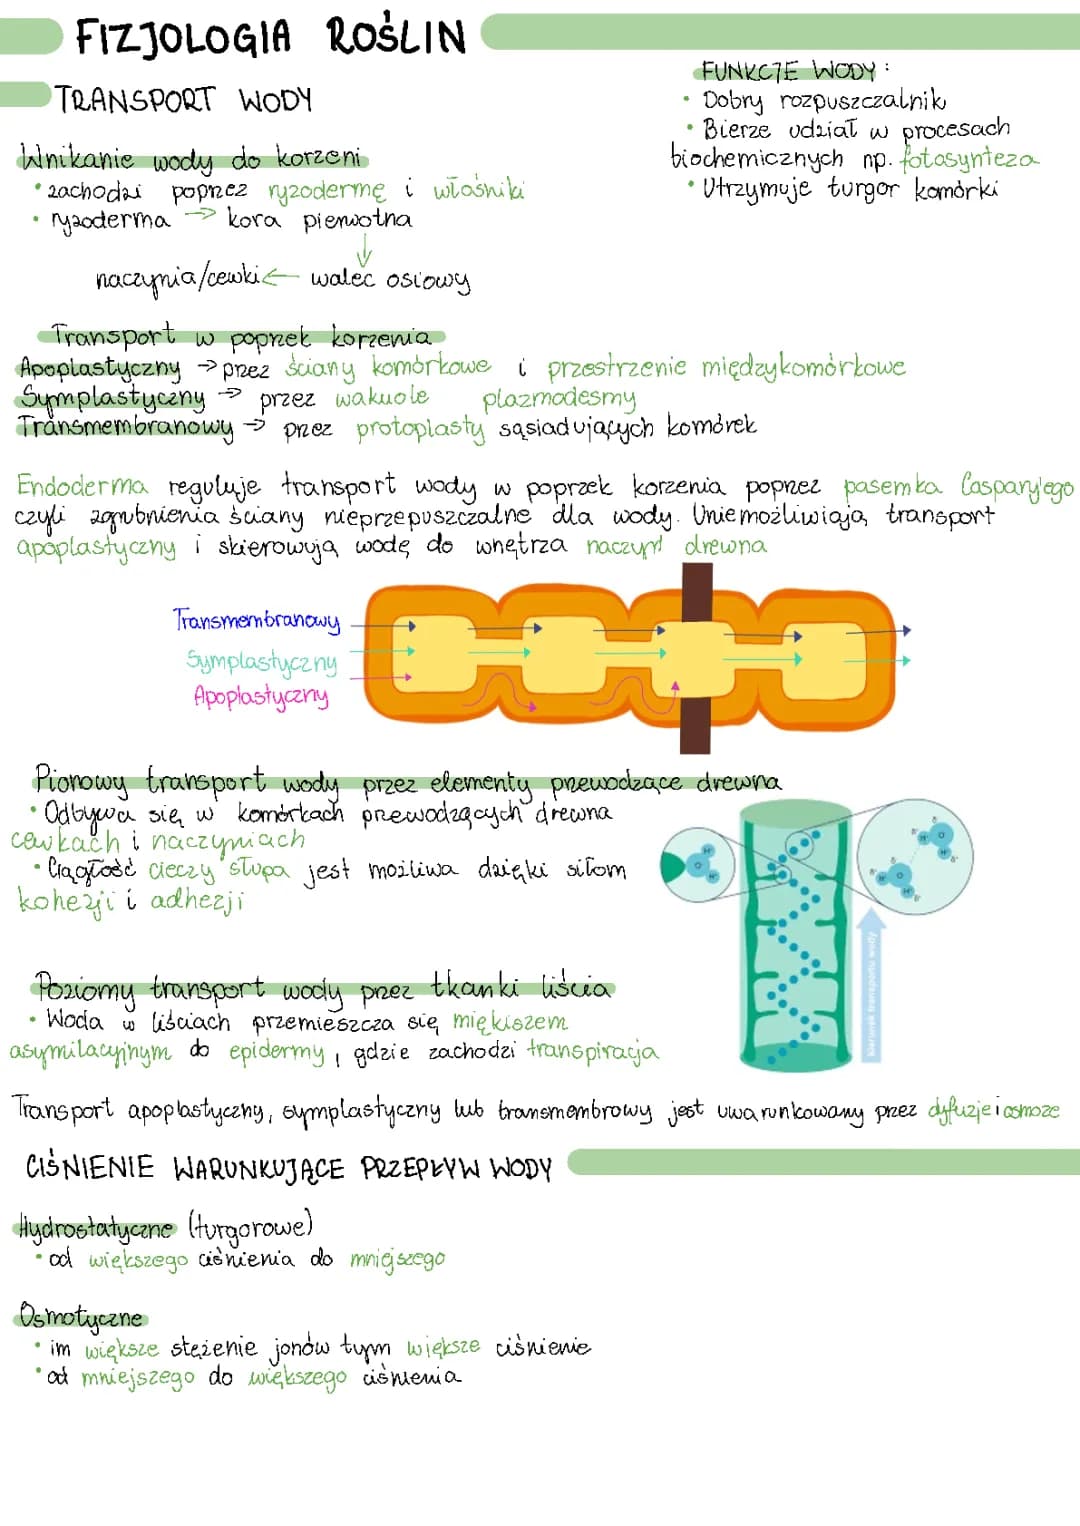 FIZJOLOGIA ROŚLIN
TRANSPORT WODY
FUNKCJE WODY :
• Dobry rozpuszczalnik
• Bierze udział w procesach
biochemicznych np. fotosynteza
• Utrzymuje turgor komórki
Wnikanie wody do korzeni
• zachodzi poprzez ryzodermę i włośniki
• ryzoderma → kora pierwotna
↓
naczynia/cewki ← walec osiowy
Transport w poprzek korzenia
Apoplastyczny → przez ściany komórkowe i przestrzenie międzykomórkowe
Symplastyczny → przez wakuole plazmodesmy
Transmembranowy → przez protoplasty sąsiadujących komórek
Endoderma reguluje transport wody w poprzek korzenia poprzez pasemka Caspary'ego
czyli zgrubnienia ściany nieprzepuszczalne dla wody. Uniemożliwiają transport
apoplastyczny i skierowują wodę do wnętrza naczyń drewna
Transmembranowy
Symplastyczny
Apoplastyczny
Pionowy transport wody przez elementy przewodzące drewna
• Odbywa się w komórkach przewodzących drewna
cewkach i naczyniach
• Ciągłość cieczy słupa jest możliwa dzięki siłom
kohezji i adhezji
kierunek transportu wody
Poziomy transport wody przez tkanki liścia
• Woda w liściach przemieszcza się miękiszem
asymilacyjnym do epidermy, gdzie zachodzi transpiracja
Transport apoplastyczny, symplastyczny lub transmembrowy jest uwarunkowany przez dyfuzje i osmoze
CIŚNIENIE WARUNKUJĄCE PRZEPŁYW WODY
Hydrostatyczne (turgorowe)
• od większego ciśnienia do mniejszego
Osmotyczne
• im większe stężenie jonów tym większe ciśnienie
• od mniejszego do większego ciśnienia